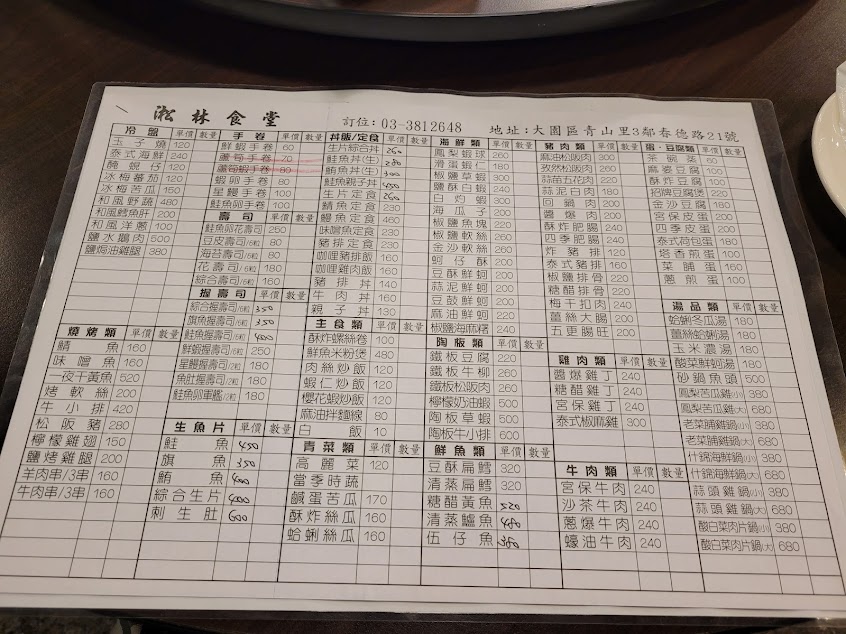 淞林食堂 訂位:03-3812648 地址:大園區青山里3鄰春德路21號
冷盤 單價 數量
玉子燒 120
泰式海鮮 240
醃蜆仔 120
冰梅番茄 120
冰梅苦瓜 150
和風野蔬 480
和風鱈魚肝 200
和風洋蔥 100
鹽水鵝肉 500
鹽焗油雞腿 380
燒烤類 單價 數量
鯖魚 160
味噌魚 160
一夜干黃魚 520
烤軟絲 200
牛小排 420
松阪豬 280
檸檬雞翅 150
鹽烤雞腿 200
羊肉串/3串 160
牛肉串/3串 160
手卷 單價 數量
鮮蝦手卷 60
蘆筍手卷 70
蘆筍蝦手卷 80
蝦卵手卷 80
星鰻手卷 100
鮭魚卵手卷 100
壽司
鮭魚卵花壽司 250
豆皮壽司/6粒 80
海苔壽司/6粒 80
花壽司/6粒 180
綜合壽司/6粒 160
握壽司 單價 數量
綜合握壽司/6粒 350
旗魚握壽司/6粒 350
鮭魚握壽司/6粒 400
鮮蝦握壽司/6粒 250
星鰻握壽司/2粒 180
魚肚握壽司/2粒 180
鮭魚卵軍艦/2粒 180
生魚片 單價 數量
鮭魚 450
旗魚 350
鮪魚 400
綜合生片 400
刺生肚 600
丼飯/定食 單價 數量
生片綜合丼 260
鮭魚丼(生) 280
鮪魚丼(生) 300
鮭魚親子丼 450
生片定食 260
鯖魚定食 230
鰻魚定食 260
味噌魚定食 230
豬排定食 230
咖哩豬排飯 160
咖哩雞肉飯 160
豬排丼 140
牛肉丼 140
親子丼 130
主食類 單價 數量
酥炸螺絲卷 100
鮮魚米粉煲 480
肉絲炒飯 120
蝦仁炒飯 120
櫻花蝦炒飯 120
麻油拌麵線 80
白飯 10
青菜類 單價 數量
高麗菜 120
當季時蔬
鹹蛋苦瓜 170
酥炸絲瓜 160
蛤蜊絲瓜 160
海鮮類 單價 數量
鳳梨蝦球 260
滑蛋蝦仁 180
椒鹽草蝦 300
鹽酥白蝦 240
白灼蝦 300
海瓜子 200
椒鹽魚塊 220
椒鹽軟絲 260
金沙軟絲 260
蚵仔酥 200
豆酥鮮蚵 200
蒜泥鮮蚵 200
豆鼓鮮蚵 200
麻油鮮蚵 200
椒鹽海麻糬 240
陶板類 單價 數量
鐵板豆腐 220
鐵板牛柳 260
鐵板松阪肉 260
檸檬奶油蝦 500
陶板草蝦 500
陶板牛小排 600
鮮魚類 單價 數量
豆酥扁鱈 320
清蒸扁鱈 320
糖醋黃魚 520
清蒸鱸魚 450
伍仔魚 350
豬肉類 單價 數量
麻油松阪肉 300
孜然松阪肉 260
蒜苗五花肉 220
蒜泥白肉 180
回鍋肉 200
醬爆肉 200
酥炸肥腸 240
四季肥腸 240
炸豬排 120
泰式豬排 180
椒鹽排骨 200
糖醋排骨 200
梅干扣肉 240
薑絲大腸 200
五更腸旺 200
雞肉類 單價 數量
醬爆雞丁 240
糖醋雞丁 240
宮保雞丁 240
泰式椒麻雞 300
牛肉類 單價 數量
宮保牛肉 240
沙茶牛肉 240
蔥爆牛肉 240
蠔油牛肉 240
蛋、豆腐類 單價 數量
茶碗蒸 60
麻婆豆腐 100
酥炸豆腐 100
招牌豆腐煲 200
金沙豆腐 180
宮保皮蛋 200
四季皮蛋 200
泰式荷包蛋 180
塔香煎蛋 100
菜脯蛋 100
蔥煎蛋 100
湯品類 單價 數量
蛤蜊冬瓜湯 180
薑絲蛤蜊湯 180
玉米濃湯 180
酸菜鮮蚵湯 180
砂鍋魚頭 500
鳳梨苦瓜雞(小) 380
鳳梨苦瓜雞(大) 680
老菜脯雞鍋(小) 380
老菜脯雞鍋(大) 680
什錦海鮮鍋(小) 380
什錦海鮮鍋(大) 680
蒜頭雞鍋(小) 380
蒜頭雞鍋(大) 680
酸白菜肉片鍋(小) 380
酸白菜肉片鍋(大) 680